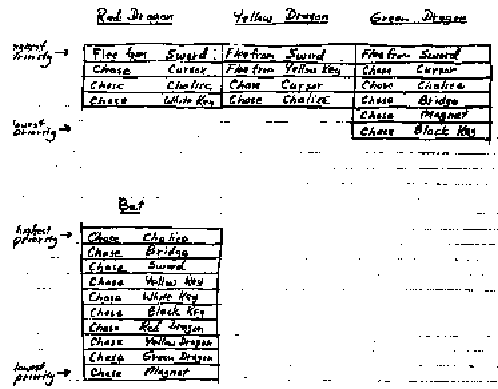 Red Dragon Yellow Dragon Green Dragon
highest priority →
Flee from Sword Flee from Sword Flee from Sword
Chase Cursor Flee from Yellow Key Chase Cursor
Chase Chalice Chase Cursor Chase Chalice
Chase White Key Chase Chalice Chase Bridge
Chase Magnet
lowest priority →
Chase Black Key
Bat
highest priority →
Chase Chalice
Chase Bridge
Chase Sword
Chase Yellow Key
Chase White Key
Chase Black Key
Chase Red Dragon
Chase Yellow Dragon
Chase Green Dragon
lowest priority →
Chase Magnet